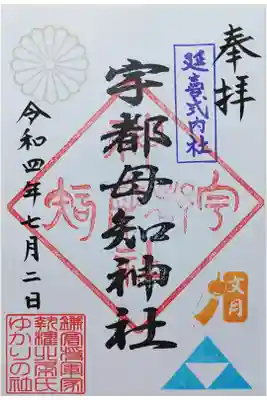 奉拝
延喜式内社
宇都母知神社
文月
令和四年七月二日
鎌倉将軍家
執権北条氏
ゆかりの社